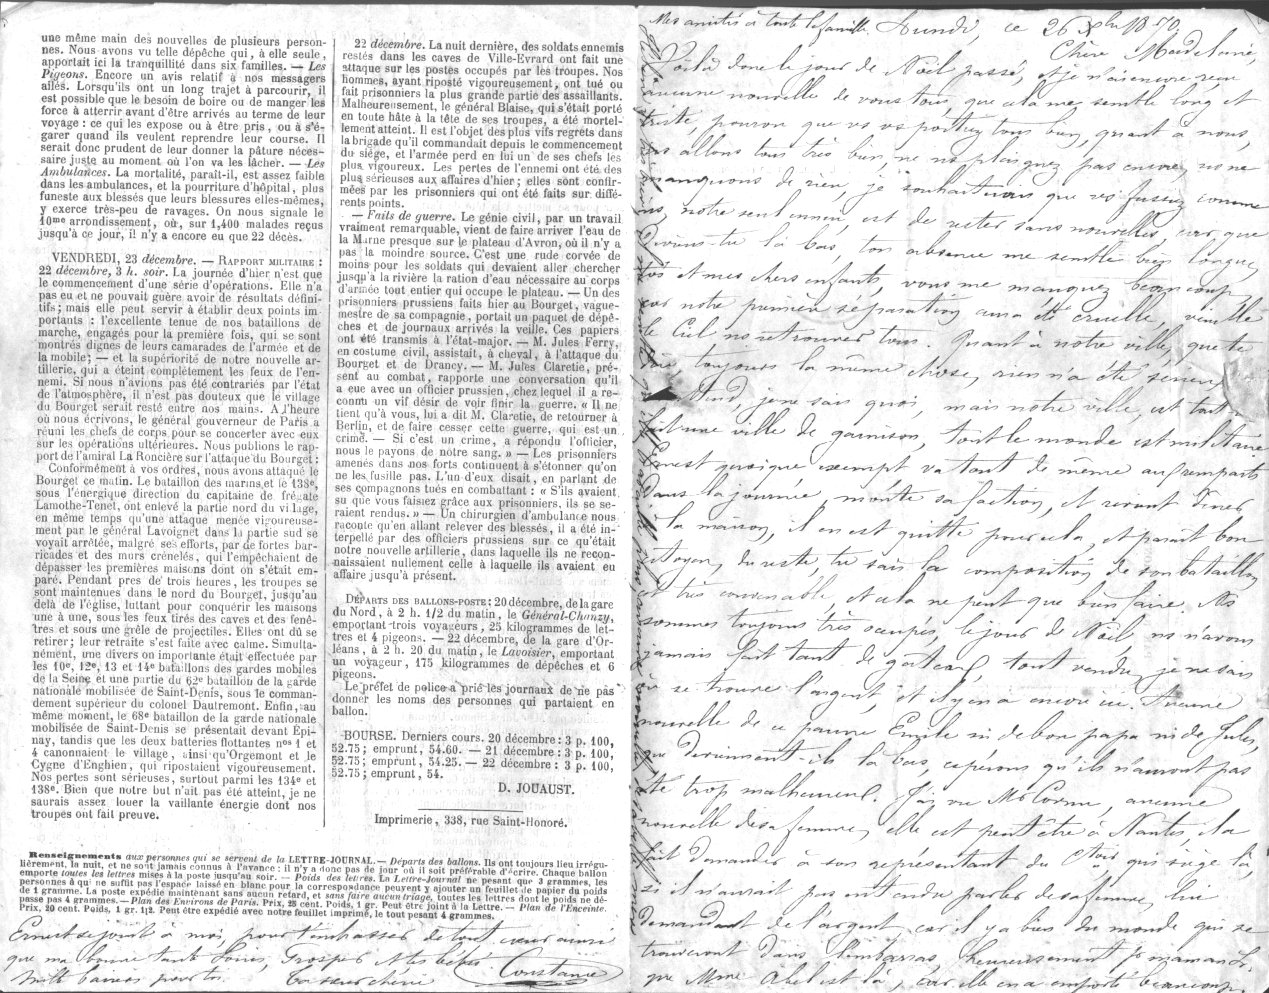 une même main des nouvelles de plusieurs person-
nes. Nous avons vu telle dépêche qui, à elle seule,
apportait ici la tranquillité dans six familles. — Les
Pigeons. Encore un avis relatif à nos messagers
ailés. Lorsqu'ils ont un long trajet à parcourir, il
est possible que le besoin de boire ou de manger les
force à atterrir avant d'être arrivés au terme de leur
voyage : ce qui les expose ou à être pris, ou à s'é-
garer quand ils veulent reprendre leur course. Il
serait donc prudent de leur donner la pâture néces-
saire juste au moment où l'on va les lâcher. — Les
Ambulances. La mortalité, paraît-il, est assez faible
dans les ambulances, et la pourriture d'hôpital, plus
funeste aux blessés que leurs blessures elles-mêmes,
y exerce très-peu de ravages. On nous signale le
10me arrondissement, où, sur 1,400 malades reçus
jusqu'à ce jour, il n'y a encore eu que 22 décès.
VENDREDI, 23 décembre. — RAPPORT MILITAIRE :
22 décembre, 3 h. soir. La journée d'hier n'est que
le commencement d'une série d'opérations. Elle n'a
pas eu et ne pouvait guère avoir de résultats défini-
tifs ; mais elle peut servir à établir deux points im-
portants : l'excellente tenue de nos bataillons de
marche, engagés pour la première fois, qui se sont
montrés dignes de leurs camarades de l'armée et de
la mobile ; — et la supériorité de notre nouvelle ar-
tillerie, qui a éteint complètement les feux de l'en-
nemi. Si nous n'avions pas été contrariés par l'état
de l'atmosphère, il n'est pas douteux que le village
du Bourget serait resté entre nos mains. A l'heure
où nous écrivons, le général gouverneur de Paris a
réuni les chefs de corps pour se concerter avec eux
sur les opérations ultérieures. Nous publions le rap-
port de l'amiral La Roncière sur l'attaque du Bourget :
Conformément à vos ordres, nous avons attaqué le
Bourget ce matin. Le bataillon des marins et le 138e,
sous l'énergique direction du capitaine de frégate
Lamothe-Tenet, ont enlevé la partie nord du village,
en même temps qu'une attaque menée vigoureuse-
ment par le général Lavoignet dans la partie sud se
voyait arrêtée, malgré ses efforts, par de fortes bar-
ricades et des murs crénelés, qui l'empêchaient de
dépasser les premières maisons dont on s'était em-
paré. Pendant près de trois heures, les troupes se
sont maintenues dans le nord du Bourget, jusqu'au
delà de l'église, luttant pour conquérir les maisons
une à une, sous les feux tirés des caves et des fenê-
tres et sous une grêle de projectiles. Elles ont dû se
retirer ; leur retraite s'est faite avec calme. Simulta-
nément, une diversion importante était effectuée par
les 10e, 12e, 13 et 14e bataillons des gardes mobiles
de la Seine et une partie du 62e bataillon de la garde
nationale mobilisée de Saint-Denis, sous le comman-
dement supérieur du colonel Dautremont. Enfin, au
même moment, le 68e bataillon de la garde nationale
mobilisée de Saint-Denis se présentait devant Epi-
nay, tandis que les deux batteries flottantes nos 1 et
4 canonnaient le village, ainsi qu'Orgemont et le
Cygne d'Enghien, qui ripostaient vigoureusement.
Nos pertes sont sérieuses, surtout parmi les 134e et
138e. Bien que notre but n'ait pas été atteint, je ne
saurais assez louer la vaillante énergie dont nos
troupes ont fait preuve.
22 décembre. La nuit dernière, des soldats ennemis
restés dans les caves de Ville-Evrard ont fait une
attaque sur les postes occupés par les troupes. Nos
hommes, ayant riposté vigoureusement, ont tué ou
fait prisonniers la plus grande partie des assaillants.
Malheureusement, le général Blaise, qui s'était porté
en toute hâte à la tête de ses troupes, a été mortel-
lement atteint. Il est l'objet des plus vifs regrets dans
la brigade qu'il commandait depuis le commencement
du siége, et l'armée perd en lui un de ses chefs les
plus vigoureux. Les pertes de l'ennemi ont été des
plus sérieuses aux affaires d'hier ; elles sont confir-
mées par les prisonniers qui ont été faits sur diffé-
rents points.
— Faits de guerre. Le génie civil, par un travail
vraiment remarquable, vient de faire arriver l'eau de
la Marne presque sur le plateau d'Avron, où il n'y a
pas la moindre source. C'est une rude corvée de
moins pour les soldats qui devaient aller chercher
jusqu'à la rivière la ration d'eau nécessaire au corps
d'armée tout entier qui occupe le plateau. — Un des
prisonniers prussiens faits hier au Bourget, vague-
mestre de sa compagnie, portait un paquet de dépê-
ches et de journaux arrivés la veille. Ces papiers
ont été transmis à l'état-major. — M. Jules Ferry,
en costume civil, assistait, à cheval, à l'attaque du
Bourget et de Drancy. — M. Jules Claretie, pré-
sent au combat, rapporte une conversation qu'il
a eue avec un officier prussien, chez lequel il a re-
connu un vif désir de voir finir la guerre. « Il ne
tient qu'à vous, lui a dit M. Claretie, de retourner à
Berlin, et de faire cesser cette guerre, qui est un
crime. — Si c'est un crime, a répondu l'officier,
nous le payons de notre sang. » — Les prisonniers
amenés dans nos forts continuent à s'étonner qu'on
ne les fusille pas. L'un d'eux disait, en parlant de
ses compagnons tués en combattant : « S'ils avaient
su que vous faisiez grâce aux prisonniers, ils se se-
raient rendus. » — Un chirurgien d'ambulance nous
raconte qu'en allant relever des blessés, il a été in-
terpellé par des officiers prussiens sur ce qu'était
notre nouvelle artillerie, dans laquelle ils ne recon-
naissaient nullement celle à laquelle ils avaient eu
affaire jusqu'à présent.
DÉPARTS DES BALLONS-POSTE : 20 décembre, de la gare
du Nord, à 2 h. 1/2 du matin, le Général-Chanzy,
emportant trois voyageurs, 25 kilogrammes de let-
tres et 4 pigeons. — 22 décembre, de la gare d'Or-
léans, à 2 h. 20 du matin, le Lavoisier, emportant
un voyageur, 175 kilogrammes de dépêches et 6
pigeons.
Le préfet de police a prié les journaux de ne pas
donner les noms des personnes qui partaient en
ballon.
BOURSE. Derniers cours. 20 décembre : 3 p. 100,
52.75 ; emprunt, 54.60. — 21 décembre : 3 p. 100,
52.75 ; emprunt, 54.25. — 22 décembre : 3 p. 100,
52.75 ; emprunt, 54.
D. JOUAUST.
Imprimerie, 338, rue Saint-Honoré.
Renseignements aux personnes qui se servent de la LETTRE-JOURNAL. — Départs des ballons. Ils ont toujours lieu irrégu-
lièrement, la nuit, et ne sont jamais connus à l'avance : il n'y a donc pas de jour où il soit préférable d'écrire. Chaque ballon
emporte toutes les lettres mises à la poste jusqu'au soir. — Poids des lettres. La Lettre-Journal ne pesant que 3 grammes, les
personnes à qui ne suffit pas l'espace laissé en blanc pour la correspondance peuvent y ajouter un feuillet de papier du poids
de 1 gramme. La poste expédie maintenant sans aucun retard, et sans faire aucun triage, toutes les lettres dont le poids ne dé-
passe pas 4 grammes. — Plan des Environs de Paris. Prix, 25 cent. Poids, 1 gr. Peut être joint à la Lettre. — Plan de l'Enceinte.
Prix, 20 cent. Poids, 1 gr. 1/2. Peut être expédié avec notre feuillet imprimé, le tout pesant 4 grammes.
Ernest se joint à moi pour t'embrasser de tout cœur ainsi
que ma bonne tante Prosper et les bébés
Mille baisers pour toi. Ta sœur chérie Constance
Mes amitiés à toute la famille Lundi, ce 26 Xbre 1870.
Chère Madeleine,
Voilà donc le jour de Noël passé, et je n'ai encore reçu
aucune nouvelle de vous tous, que cela me semble long et
triste, pourvu que vs vs portiez tous bien, quant à nous,
ns allons tous très bien, ne ns plaignez pas encore, ns ne
manquons de rien, je souhaiterais que vs fussiez comme
notre seul ennui est de rester sans nouvelles, car que
devenez-tu là bas, ton absence me semble bien longue,
toi et mes chers enfants, vous me manquez beaucoup
car notre première séparation aura été cruelle, veuille
le Ciel ns retrouver tous. Quant à notre ville, que te
toujours la même chose, rien n'a été
je ne sais quoi, mais notre ville est tout
une ville de garnison, tout le monde est militaire
Ernest quoique exempt va tout de même aux remparts
dans la journée, monte sa faction, et revient dîner
à la maison, il en est quitte pour cela, et paraît bon
citoyen, du reste tu sais la composition de son bataillon
est très convenable, et cela ne peut que bien faire. Ns
sommes toujours très occupés, le jour de Noël, ns n'avons
jamais fait tant de gâteaux, tout vendu, je ne sais
où se trouve l'argent, et il y en a encore ici. Aucune
nouvelle de ce pauvre Emile ni de bon papa ni de Jules,
que deviennent-ils là bas, espérons qu'ils n'auront pas
été trop malheureux. J'ai vu Mr aucune
nouvelle de sa femme, elle est peut être à Nantes, il a
fait demander à son représentant du qui siège là,
si il n'aurait pas entendu parler de sa femme, lui
demandant de l'argent, car il y a bien du monde qui se
trouveront dans l'embarras, heureusement
que Mme Abel est là, car elle en a emporté beaucoup.